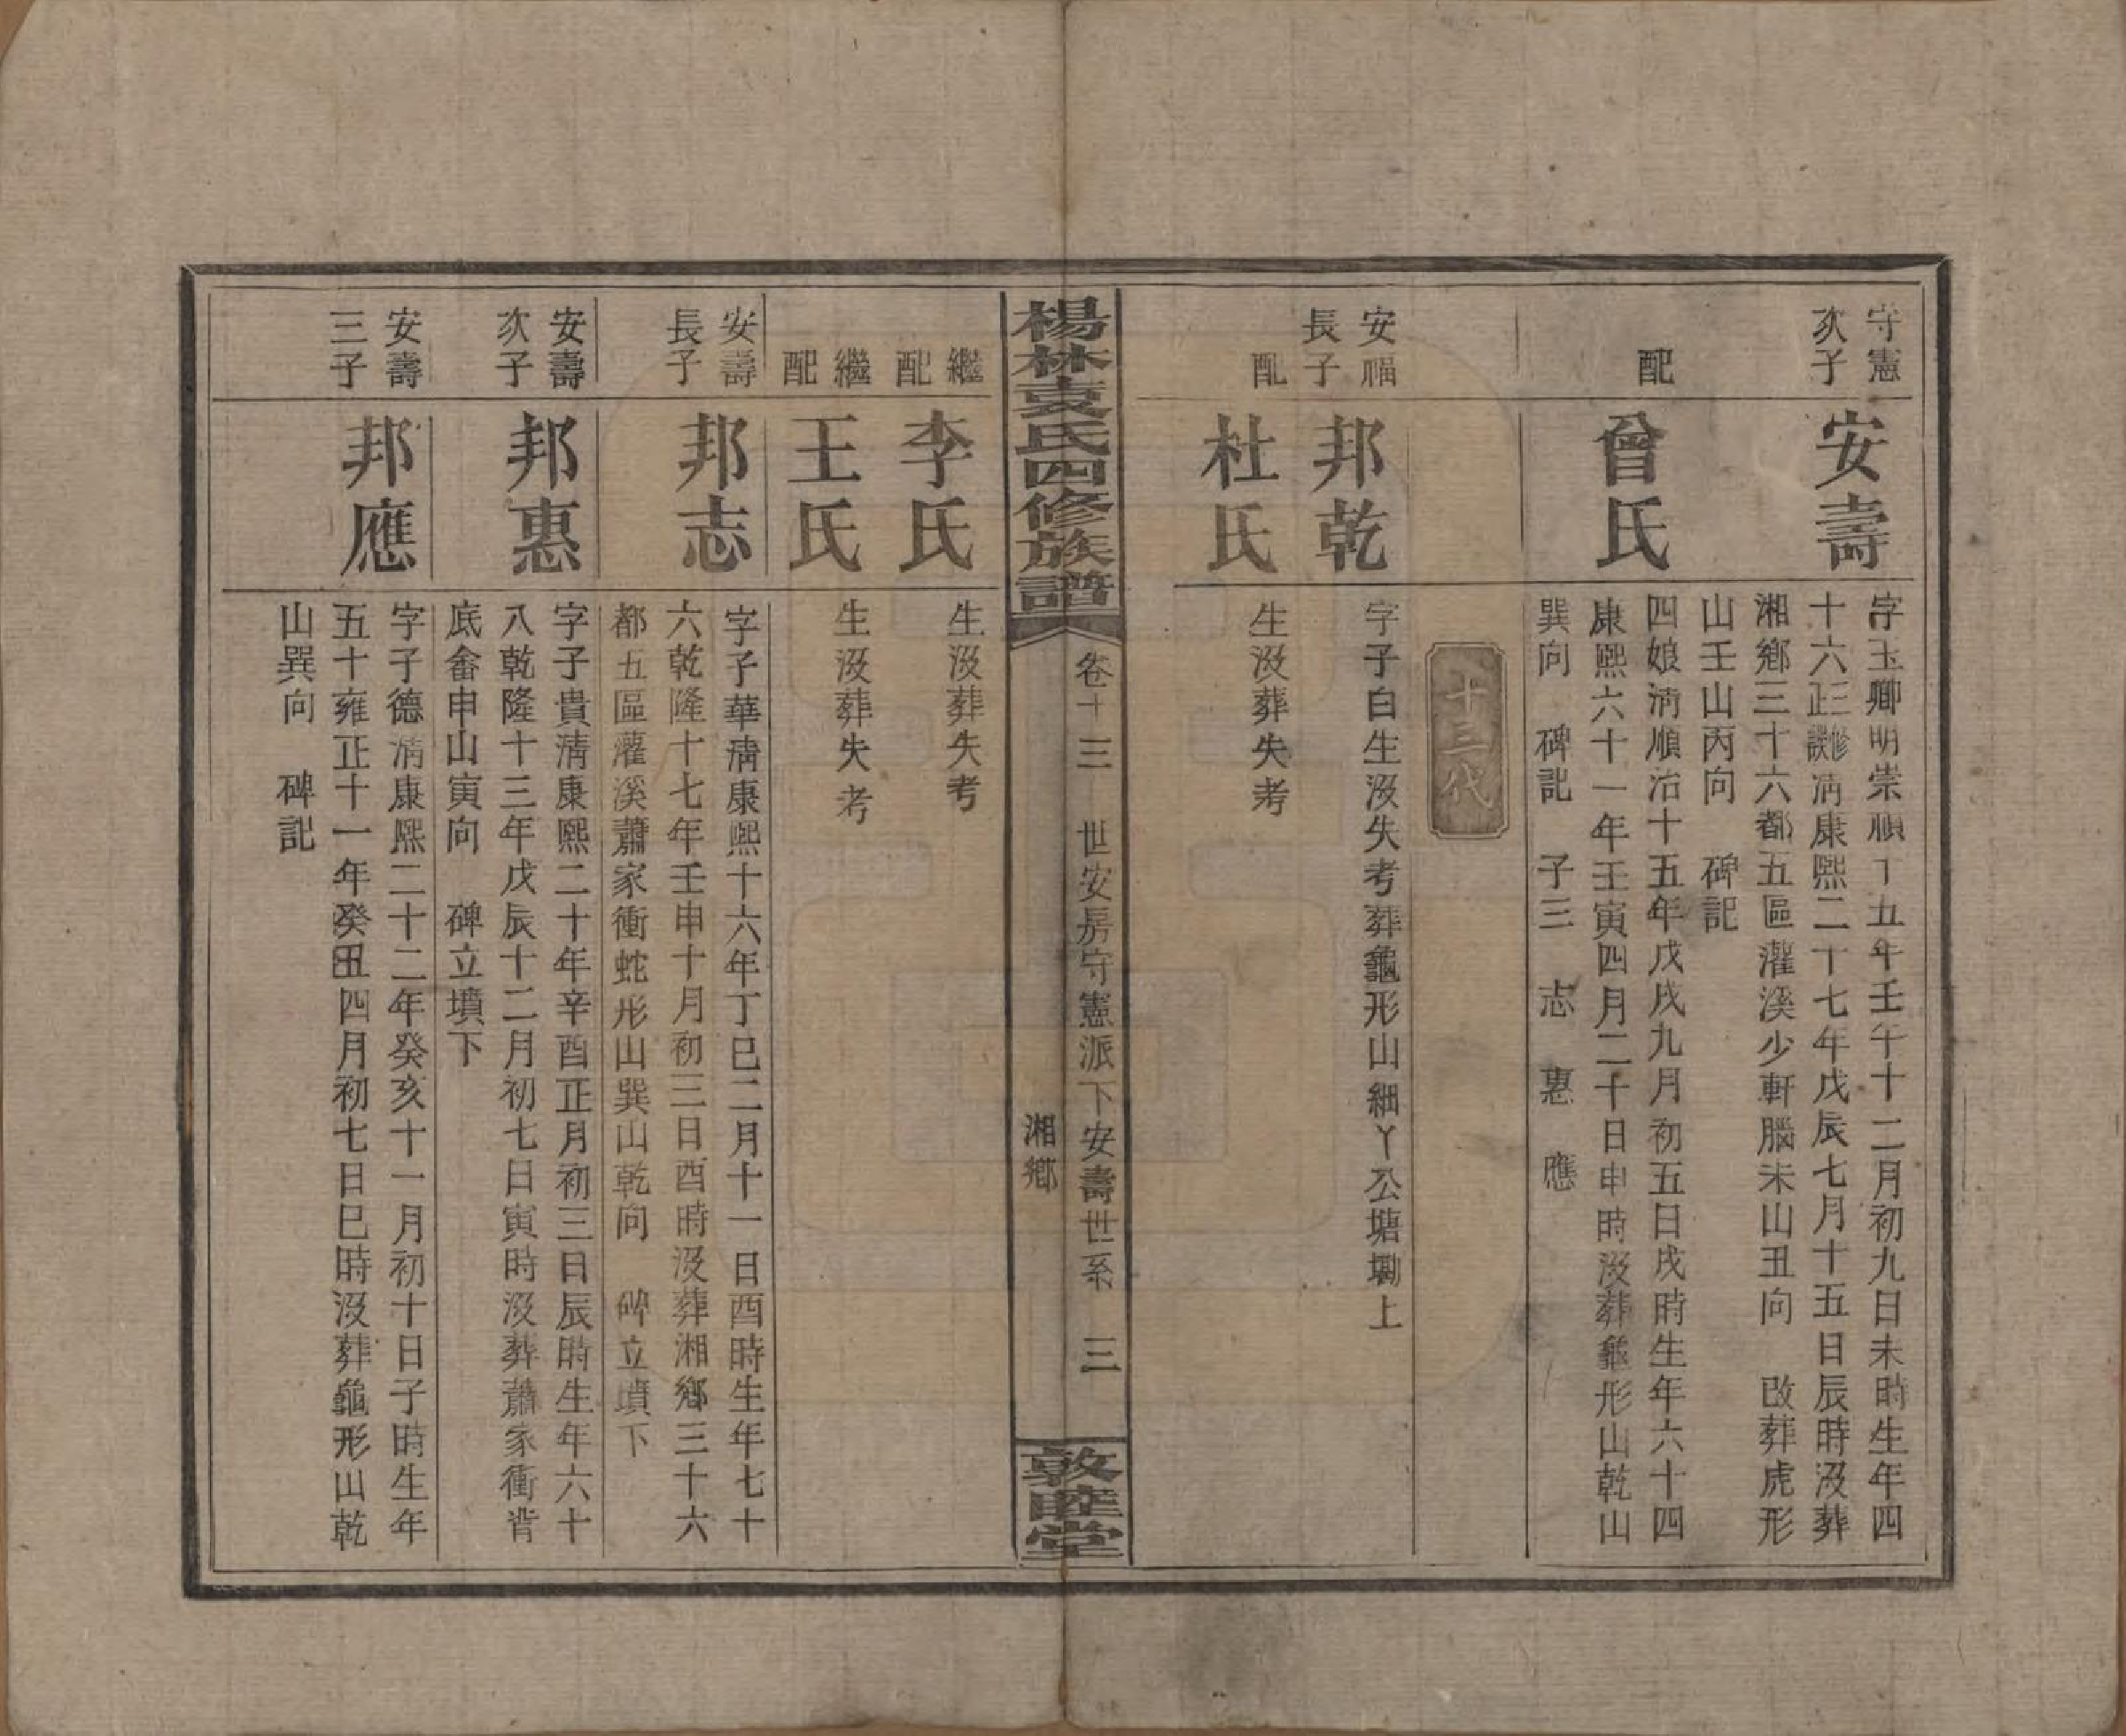 守憲
次子
安壽
字玉卿明崇禎十五年壬午十二月初九日未時生年四
十六三修正譔清康熙二十七年戊辰七月十五日辰時沒葬
湘鄉三十六都五區灌溪少軒腦未山丑向 改葬虎形
山壬山丙向 碑記
配
曾氏
四娘清順治十五年戊戌九月初五日戌時生年六十四
康熙六十一年壬寅四月二十日申時沒葬龜形山乾山
巽向 碑記 子三 志 惠 應
十三代
安福
長子
邦乾
字子白生沒失考葬龜形山細丫公塘墈上
配
杜氏
生沒葬失考
楊林袁氏四修族譜
卷十三 世安房守憲派下安壽世系 三
湘鄉
敦睦堂
繼
配
李氏
生沒葬失考
繼
配
王氏
生沒葬失考
安壽
長子
邦志
字子華清康熙十六年丁巳二月十一日酉時生年七十
六乾隆十七年壬申十月初三日酉時沒葬湘鄉三十六
都五區灌溪蕭家衝蛇形山巽山乾向 碑立墳下
安壽
次子
邦惠
字子貴清康熙二十年辛酉正月初三日辰時生年六十
八乾隆十三年戊辰十二月初七日寅時沒葬蕭家衝背
底畬申山寅向 碑立墳下
安壽
三子
邦應
字子德清康熙二十二年癸亥十一月初十日子時生年
五十雍正十一年癸丑四月初七日巳時沒葬龜形山乾
山巽向 碑記